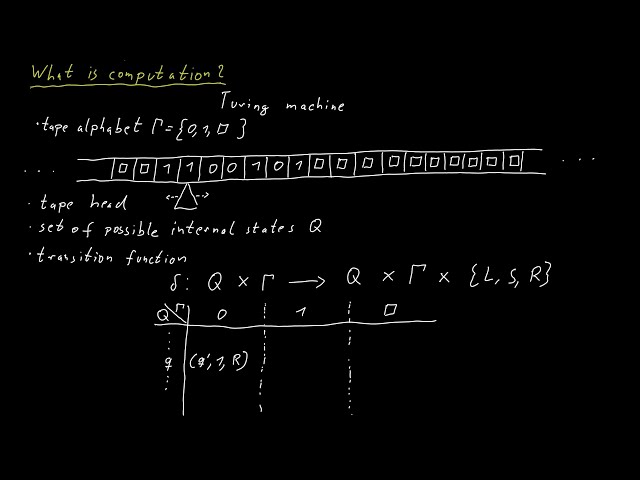 What is computation?
Turing machine
· tape alphabet Γ = {0, 1, □}
... □ □ 1 1 0 0 1 0 1 □ □ □ □ □ □ □ □ □ □ ...
· tape head
· set of possible internal states Q
· transition function
δ: Q × Γ → Q × Γ × {L, S, R}
Q Γ 0 1 □
q (q', 1, R)